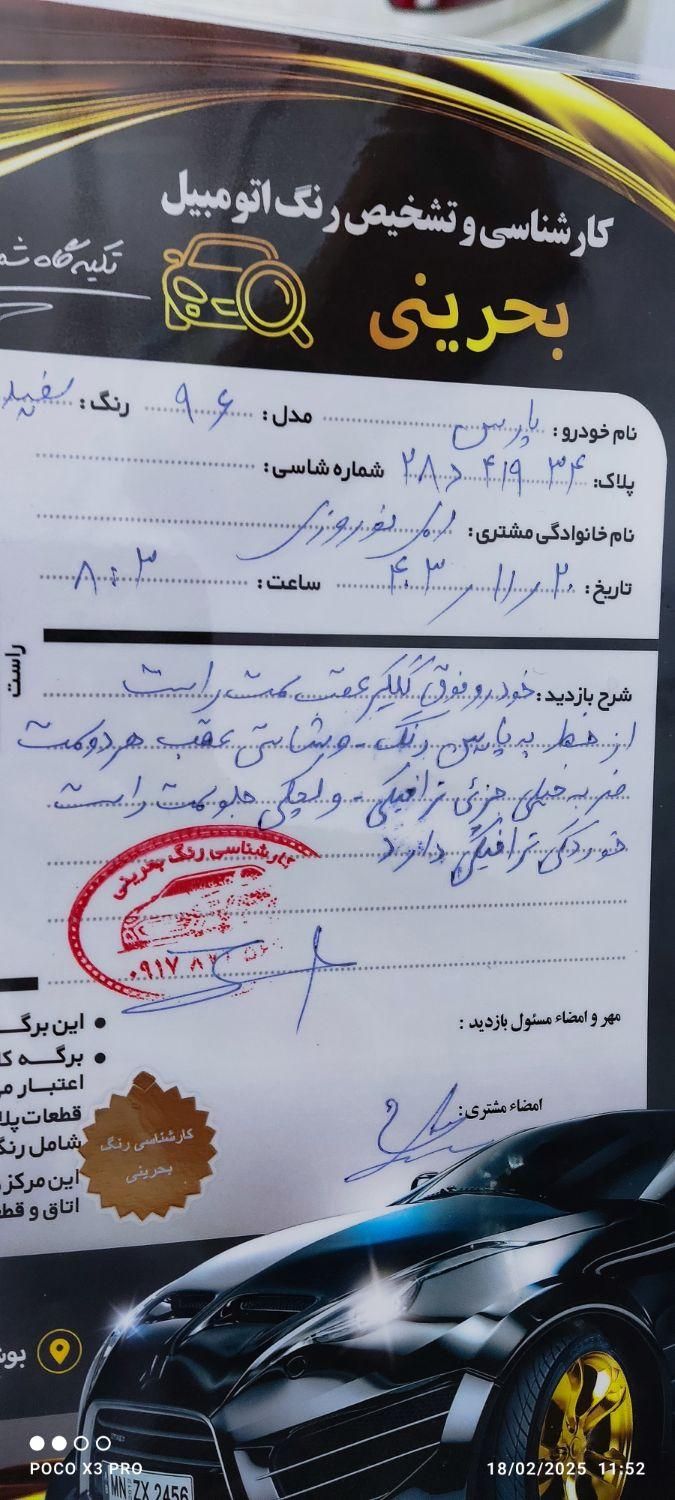 کارشناسی و تشخیص رنگ اتومبیل
تکیه گاه شم
بحرینی
نام خودرو: پارس مدل: ۹۶ رنگ: سفید
پلاک: ۳۴ ۴۱۹ د ۲۸ شماره شاسی:
نام خانوادگی مشتری: نوروزی
تاریخ: ۲۰ / ۱۱ / ۴۰۳ ساعت: ۸:۳
راست
شرح بازدید: خودرو فوق گلگیر عقب سمت راست
از خط به پایین رنگ - و شاسی عقب هر دو سمت
ضربه خیلی جزئی ترافیکی - و لچکی جلو سمت راست
خوردگی ترافیکی دارد
کارشناسی رنگ بحرینی
۰۹۱۷
مهر و امضاء مسئول بازدید :
امضاء مشتری:
این برگ
برگه کا
اعتبار می
قطعات پلا
شامل رنگ
این مرکز
اتاق و قط
کارشناسی رنگ
بحرینی
بوش
MN ZX 2456
POCO X3 PRO
18/02/2025 11:52